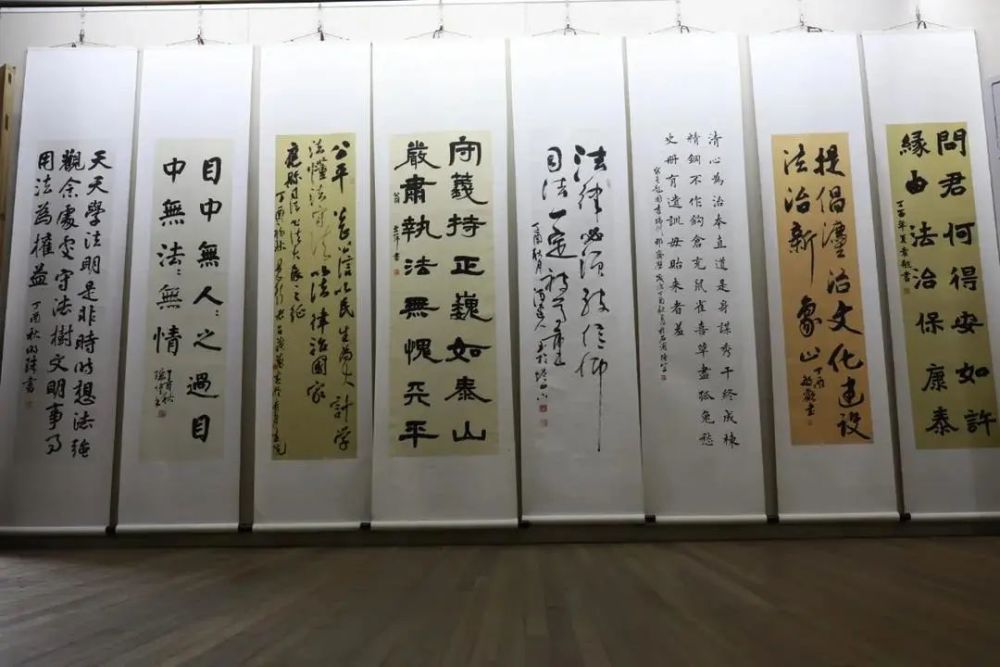 問君何得安如許
緣由法治保康泰
提倡灋治文化建设
法治新象山
丁酉
清心為治本直道是身謀秀干終成棟
精鋼不作鈎倉充鼠雀喜草盡狐兔愁
史册有遺訓毋貽來者羞
法律必須被信仰
司法一定
丁酉秋月
守義持正巍如泰山
嚴肅執法無愧天平
公平 信以民生為大計学
法懂法守法 以法律治國家
目中無人:之過目
中無法:無情
天天學法明是非時時想法繩
觀念處處守法樹文明事事
用法為權益 丁酉秋 書